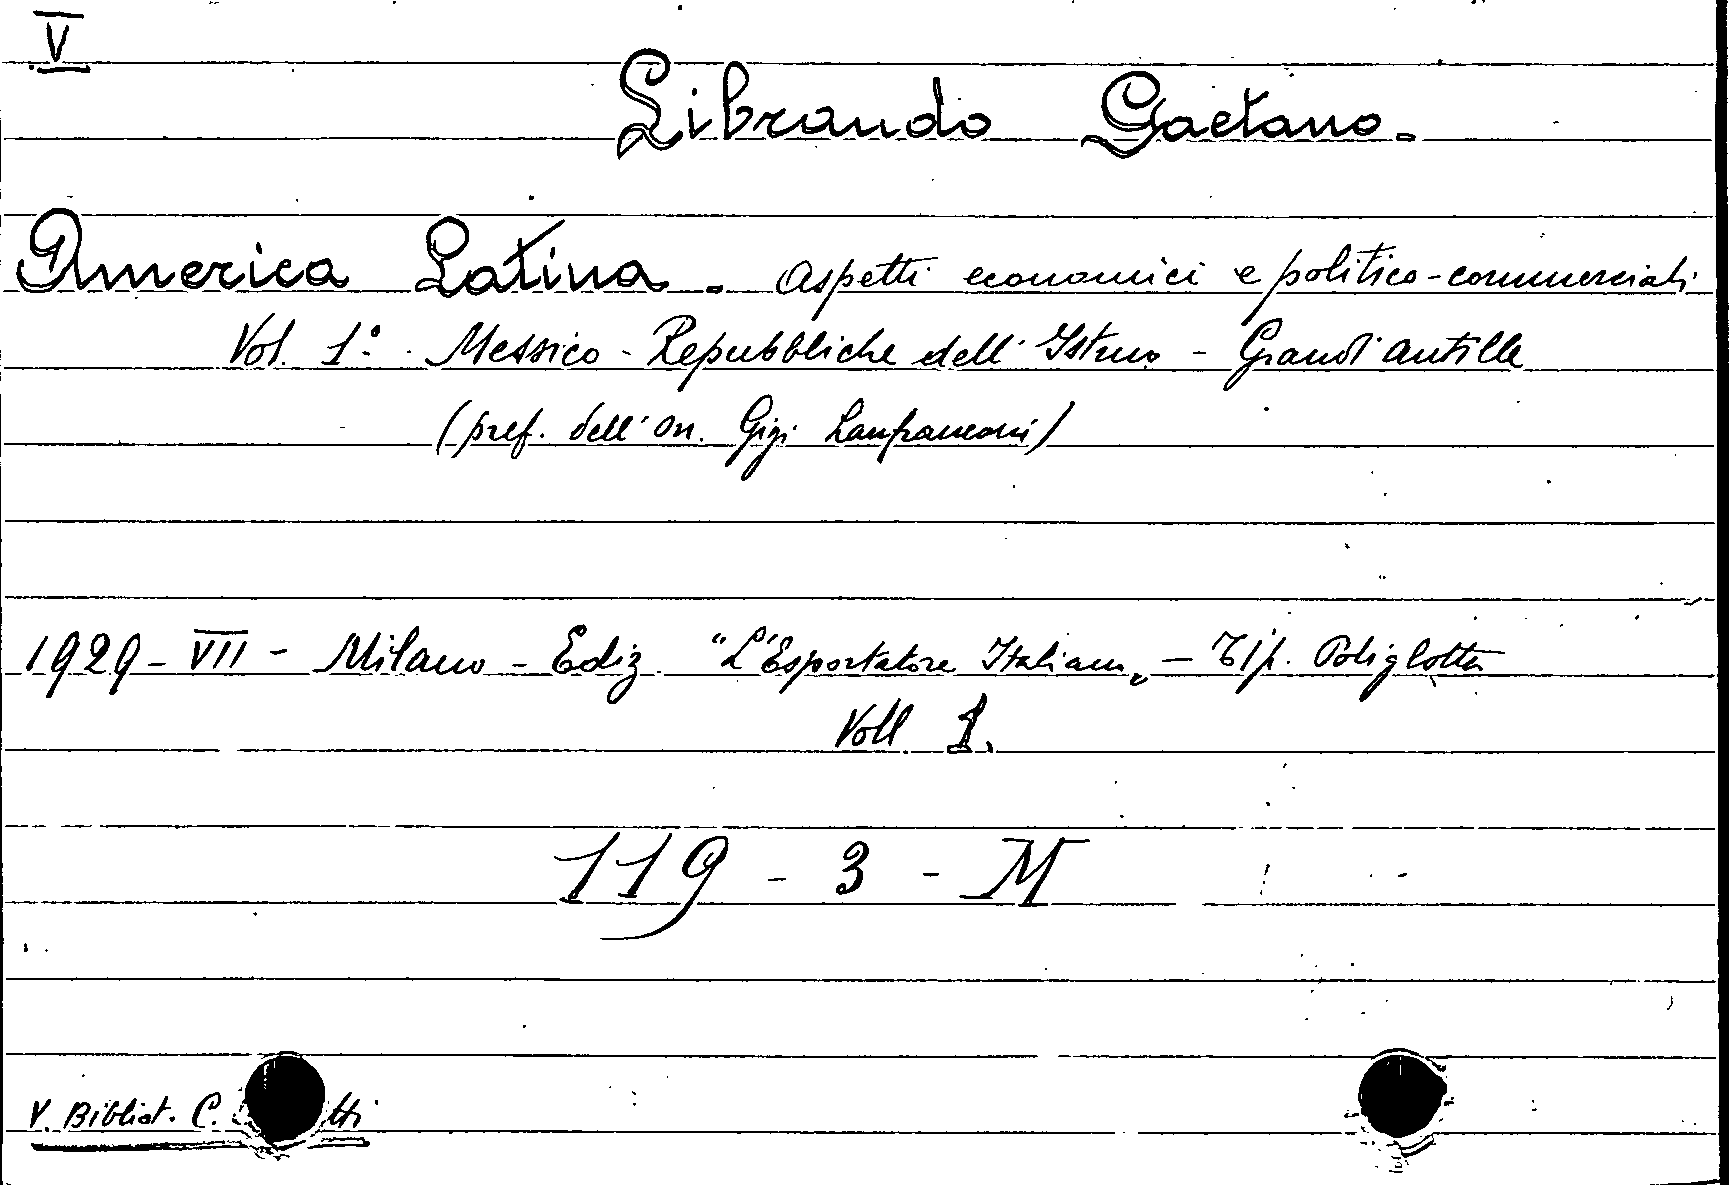 V
Librando Gaetano.
America Latina. Aspetti economici e politico-commerciali
Vol. 1º. Messico - Repubbliche dell'Istmo - Grandi Antille
(pref. dell'on. Gigi Lanfranconi)
1929 - VII - Milano - Ediz. "L'Esportatore Italiano" - Tip. Poliglotta
Voll. 1.
119 - 3 - M
V. Bibliot. C.